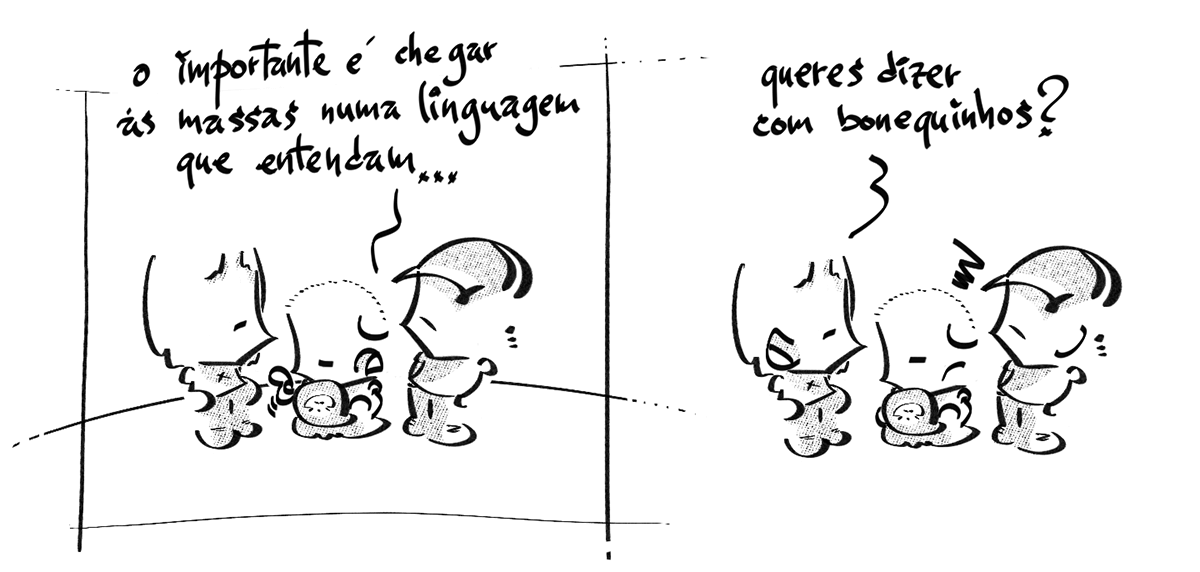 o importante é chegar
às massas numa linguagem
que entendam...
queres dizer
com bonequinhos?